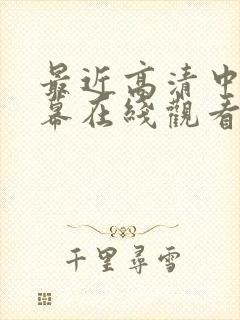 最近高清中
幕在綫觀看
千里尋雪